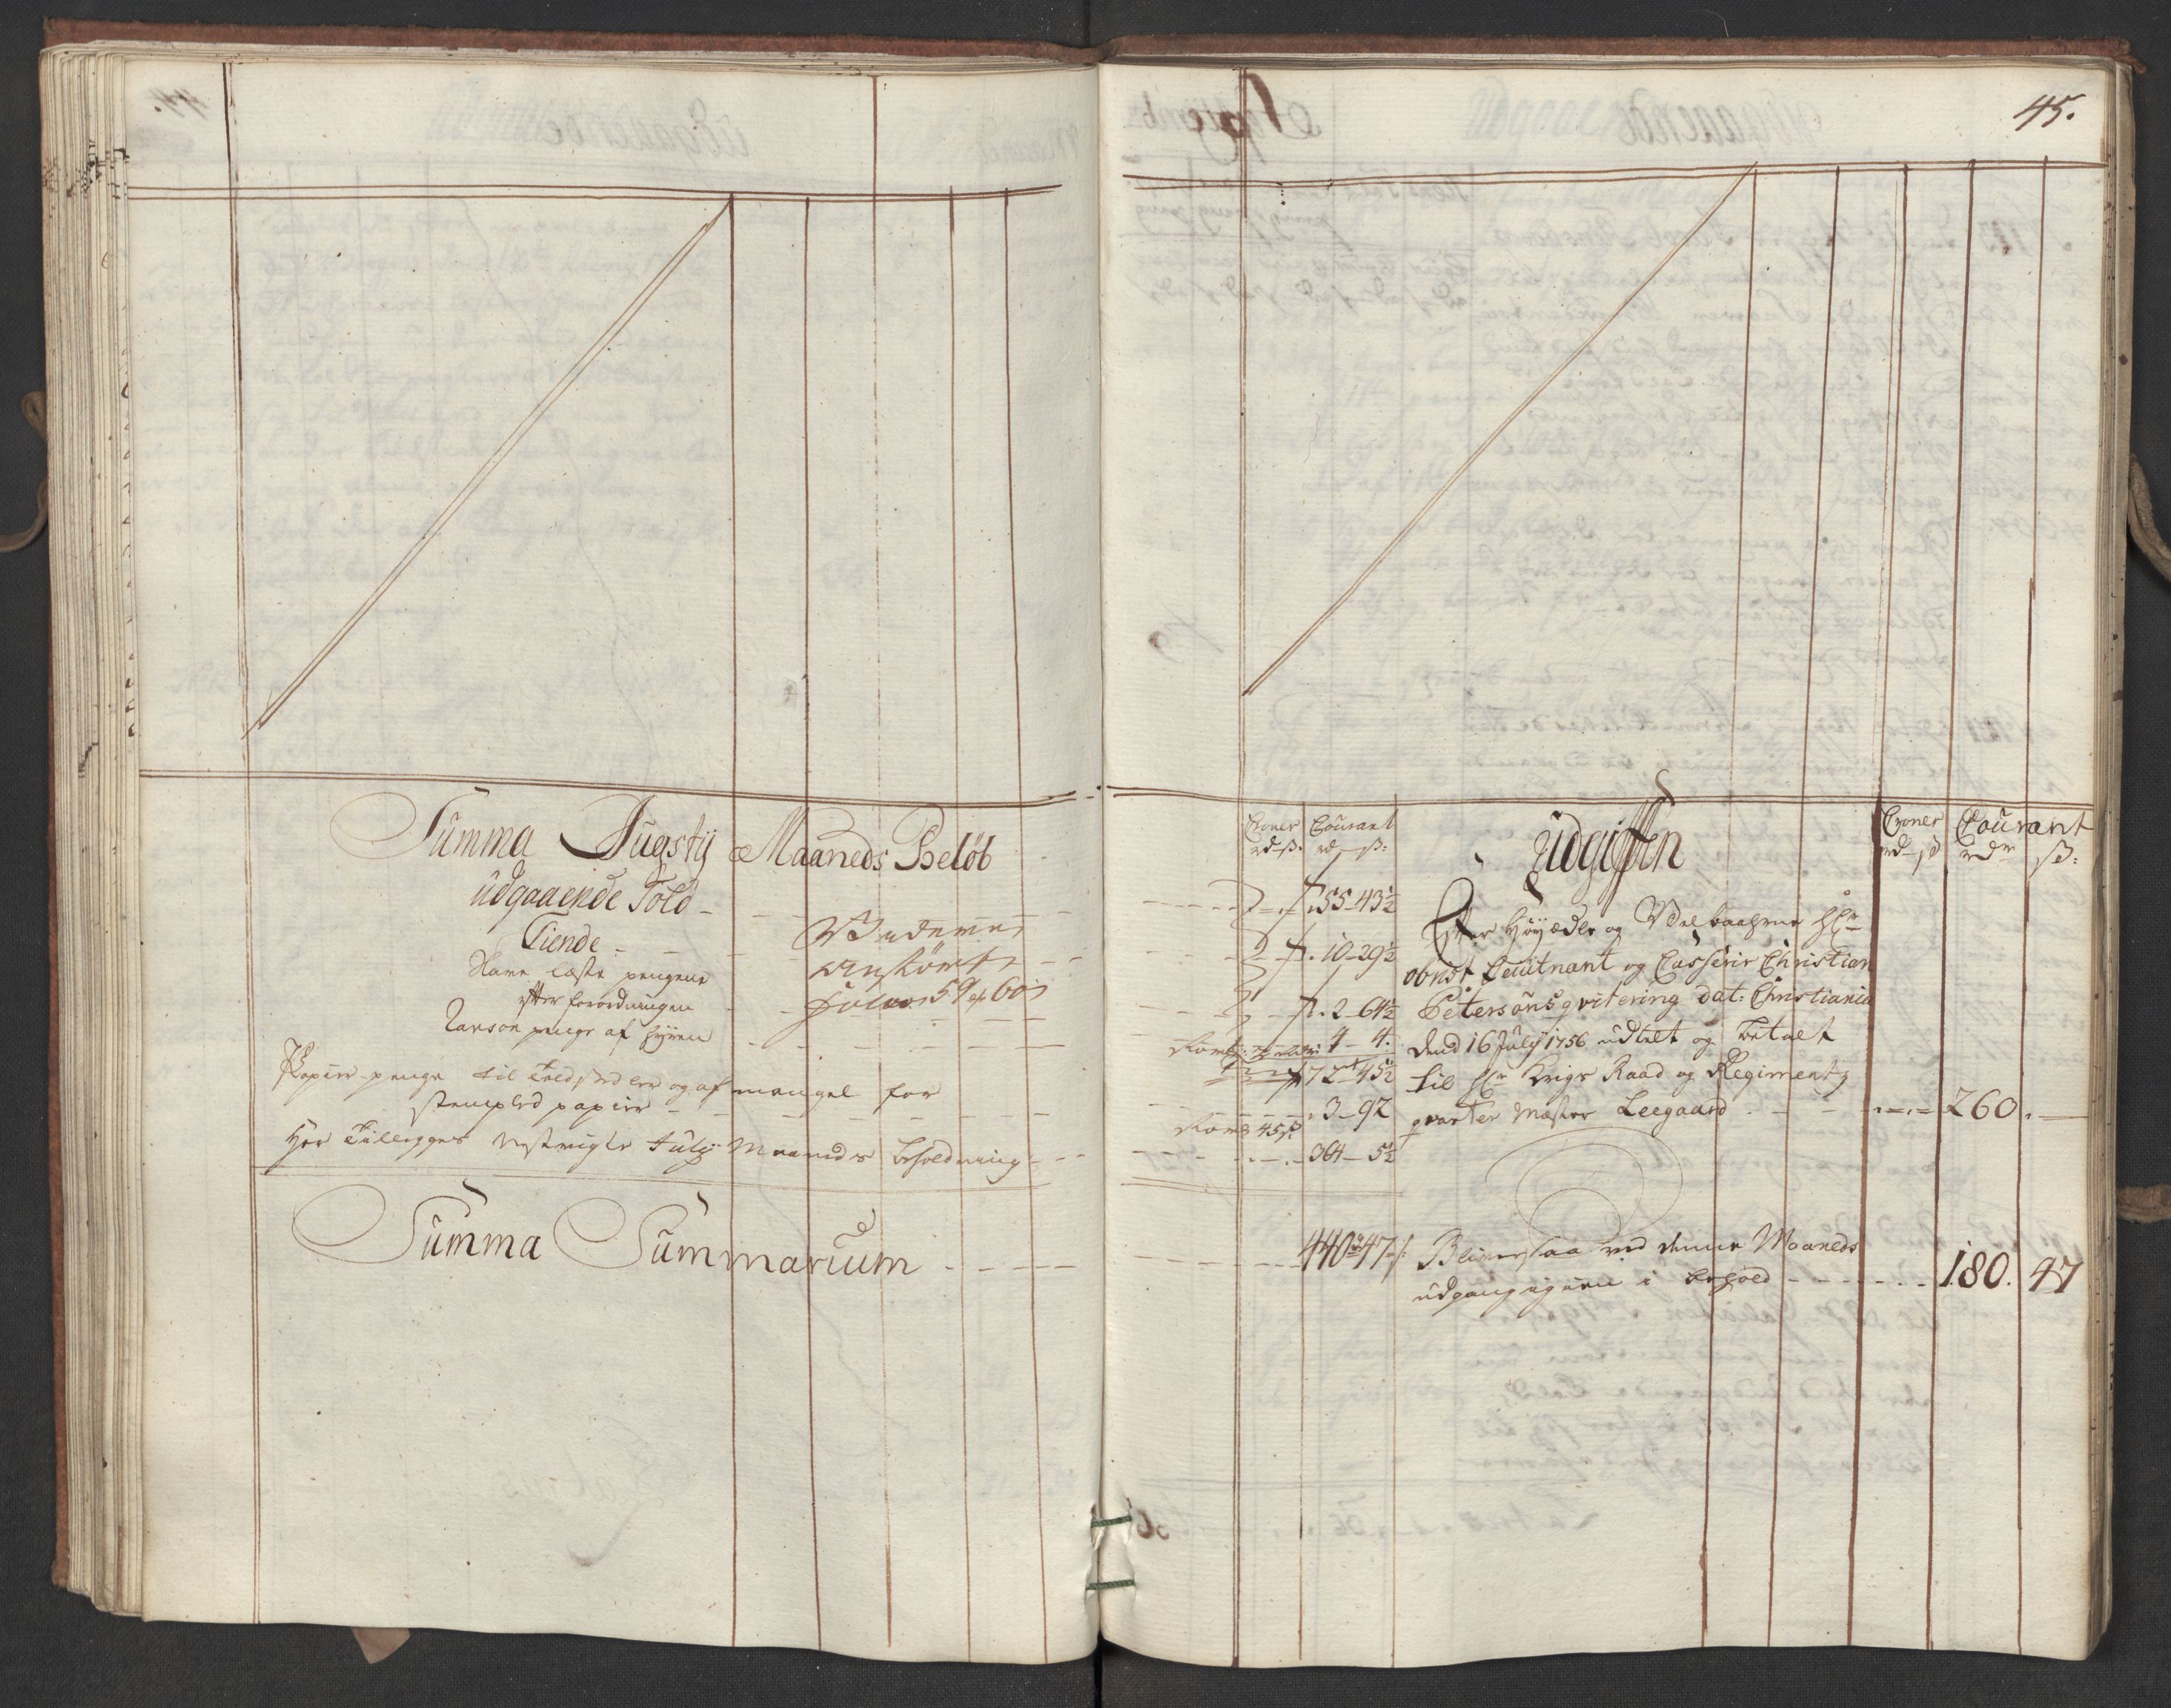 45.
Summa Augstij Maaneds Beløb
udgaaende Told
Tiende
Havne læste pengene
efter forordningen
Ranson penge af Hyren
Papiir penge til Toldsedler og af mangel for
stempled papiir
Her Tillegges næstvigte Julij Maaneds beholdning
Summa Summarum
59 60
Croner Courant
rd ß. rd ß:
55-43½
10-29½
2-64½
4-4.
72-45½
3-92
45 ß
364-5½
440 47
Udgiften
Croner Courant
rd ß rdr ß:
Efter Høyædle og Velbaarne Hr
obrist Leutnant og Casserir Christian
Petersøns qvitering dat: Christiania
dend 16 July 1756 udtelt og betalt
til Hr Krigs Raad og Regiments
qvarteer Mæster Leegaard 260.
Bliver saa ved denne Maaneds
udgang igien i behold 180. 47